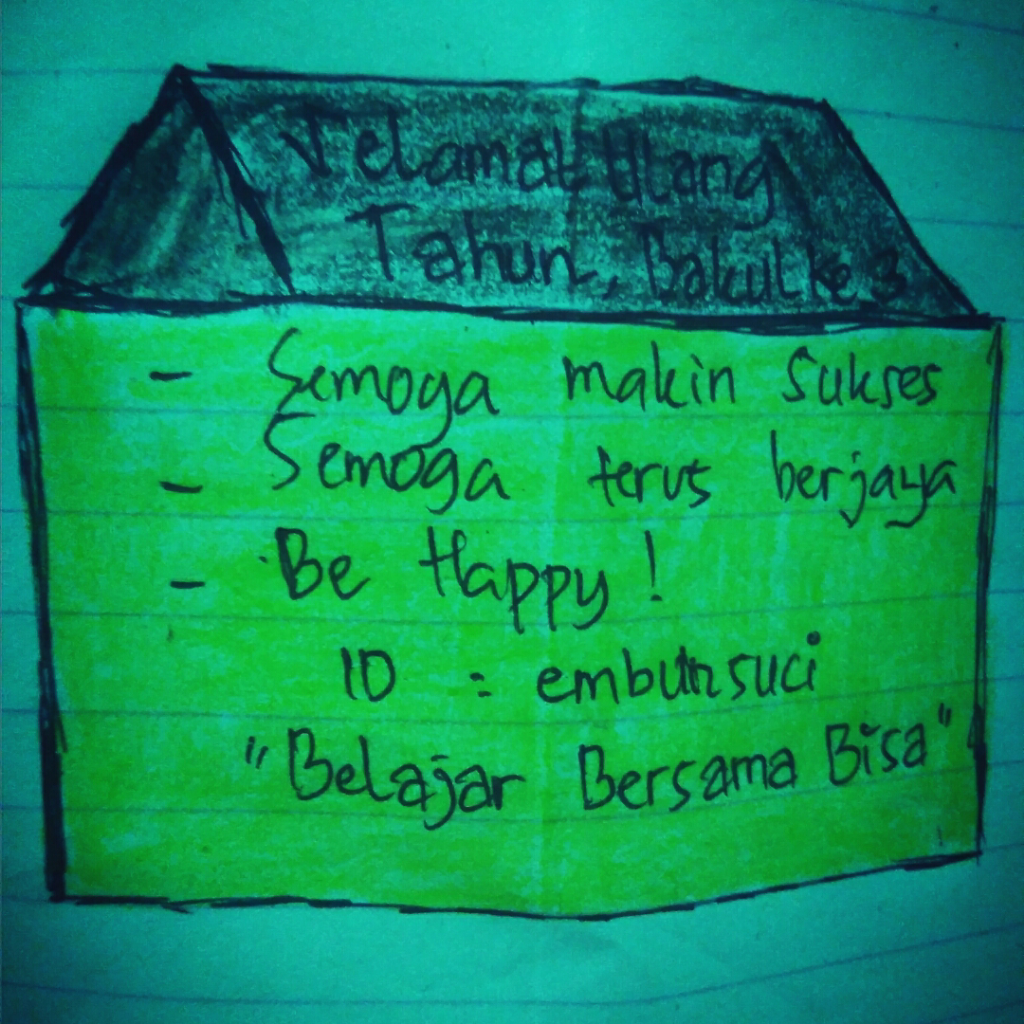 Selamat Ulang
Tahun, Bakul ke 3
- Semoga makin Sukses
- Semoga terus berjaya
- Be Happy!
ID = embunsuci
"Belajar Bersama Bisa"